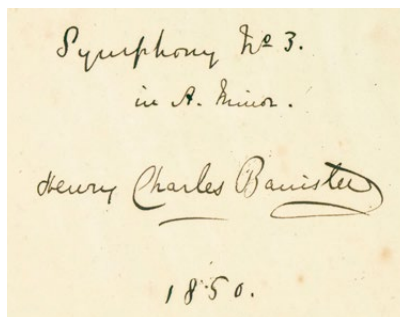 Symphony No 3.
in A. Minor.
Henry Charles Banister
1850.